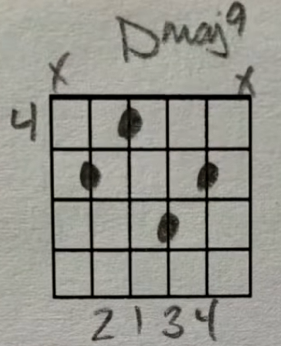 Dmaj9
x x
4
2 1 3 4